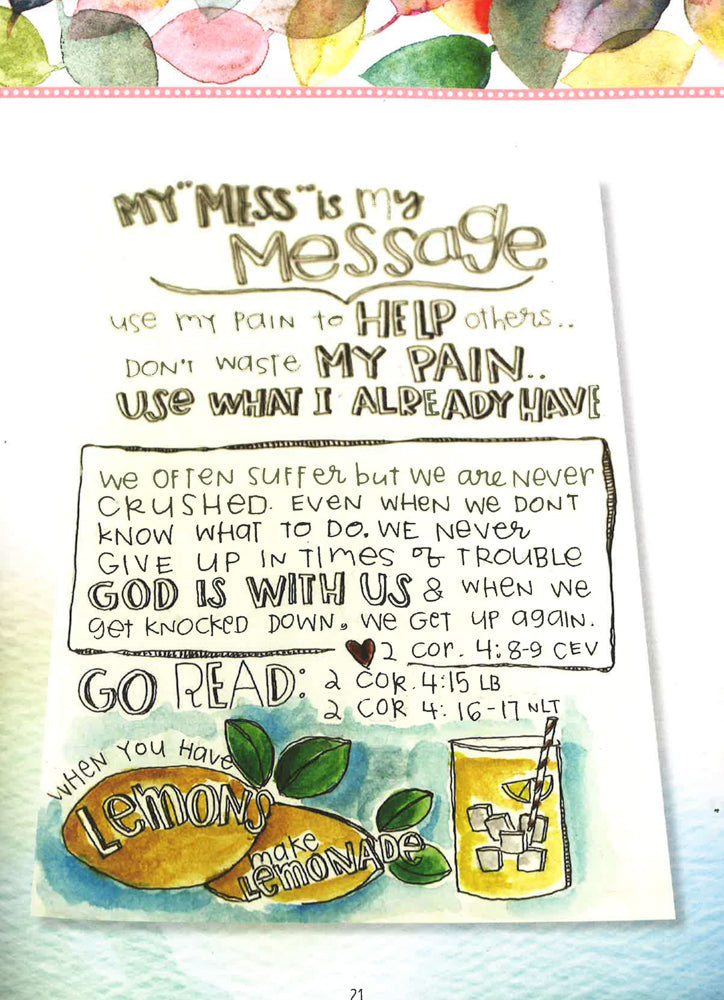 MY "MESS" is my
Message
use my pain to HELP others..
DON'T waste MY PAIN..
USE WHAT I ALREADY HAVE
We OFTEN SUFFER but we are NEVER
CRUSHED. EVEN WHEN WE DON'T
KNOW WHAT TO DO. WE NEVER
GIVE UP IN TIMES OF TROUBLE
GOD IS WITH US & WHEN WE
get KNOCKED DOWN, WE GET UP again.
2 COR. 4:8-9 CEV
GO READ: 2 COR. 4:15 LB
2 COR 4: 16-17 NLT
WHEN YOU HAVE
Lemons
make
LEMONADE
21